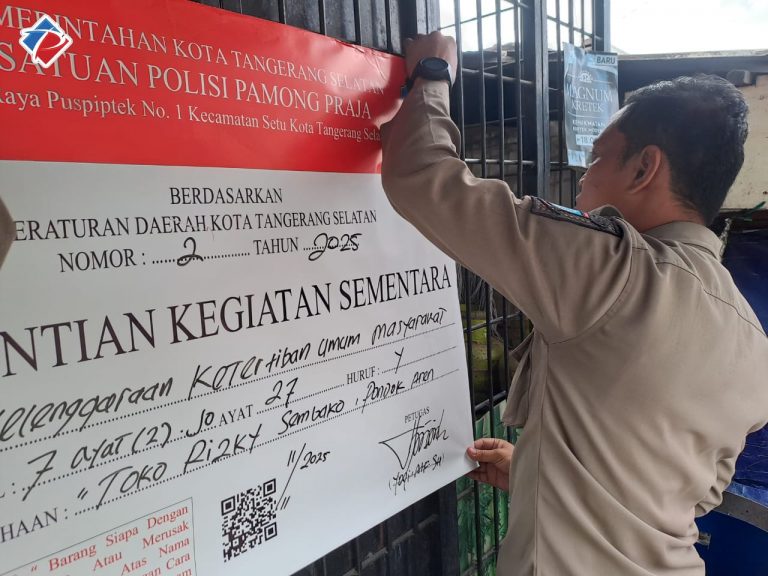 MERINTAHAN KOTA TANGERANG SELATAN
SATUAN POLISI PAMONG PRAJA
Raya Puspiptek No. 1 Kecamatan Setu Kota Tangerang Sela
BERDASARKAN
ERATURAN DAERAH KOTA TANGERANG SELATAN
NOMOR : 2 TAHUN 2025
NTIAN KEGIATAN SEMENTARA
elenggaraan Ketertiban umum masyarakat
: 7 ayat (2) Jo AYAT 27 HURUF : Y
HAAN : "Toko Rizky Sembako, Pondok Aren
PETUGAS
/11/2025
" Barang Siapa Dengan
Atau Merusak
Atas Nama
Cara
BARU
MAGNUM
KRETEK